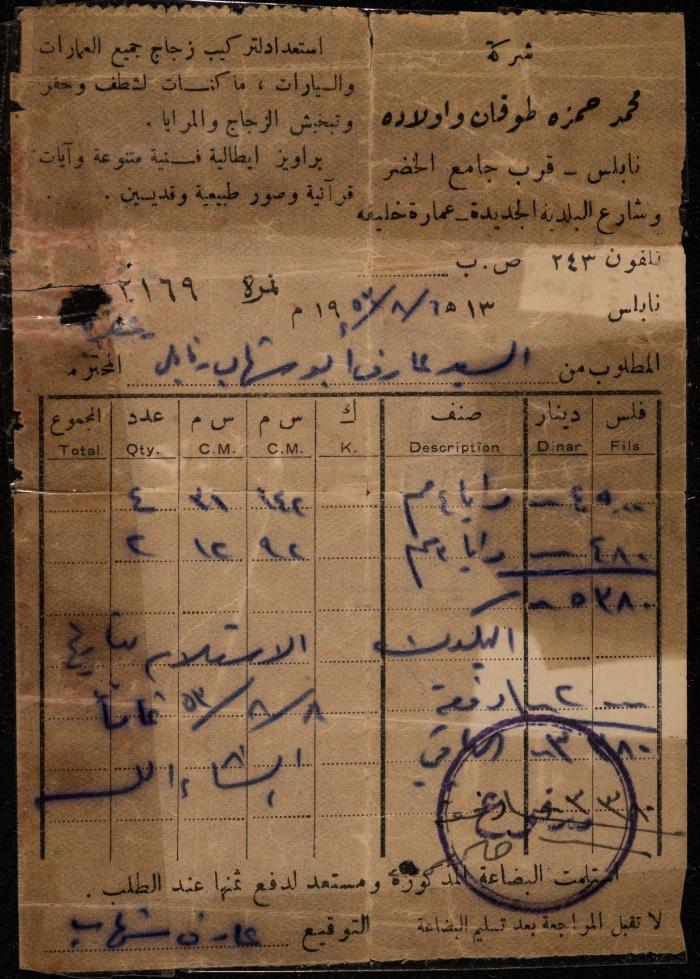 شركة
محمد حمزه طوقان واولاده
نابلس - قرب جامع الخضر
وشارع البلدية الجديدة - عمارة خليفه
تلفون ٢٤٣ ص.ب
استعداد لتركيب زجاج جميع العمارات
والسيارات ، ماكنات لشطف وحفر
وتبخيش الزجاج والمرايا .
براويز ايطالية فنية متنوعة وآيات
قرآنية وصور طبيعية وقديسين .
نمرة ٢١٦٩
نابلس ١٣ ه ٦/٨/٥٣ ١٩ م
المطلوب من السيد عارف أبو شهاب نابلس المحترم
فلس دينار صنف ك س م س م عدد المجموع
Fils Dinar Description K. C.M. C.M. Qty. Total
٤٩٠٠ — مرايا ٤ مم ١٤٢ ٣١ ٤
٤٨٠ — مرايا ٣ مم ٩٢ ١٢ ٢
٥٣٨٠ —
الاستلام
— ٢ — دفعة ٨/٨/٥٣
٣٣٨٠ الباقي إنشاء الله
استلمت البضاعة المذكورة ومستعد لدفع ثمنها عند الطلب .
لا تقبل المراجعة بعد تسليم البضاعة التوقيع عارف شهاب